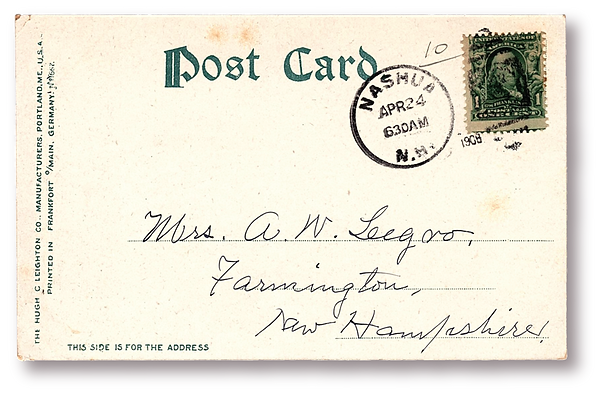 Post Card
10
NASHUA
APR 24
630AM
N.H.
1908
UNITED STATES OF
AMERICA
1 FRANKLIN 1
POSTAGE
ONE CENT
Mrs. A. W. Leegro,
Farmington,
New Hampshire,
THIS SIDE IS FOR THE ADDRESS
THE HUGH C LEIGHTON CO., MANUFACTURERS, PORTLAND, ME., U.S.A.
PRINTED IN FRANKFORT O/MAIN, GERMANY.